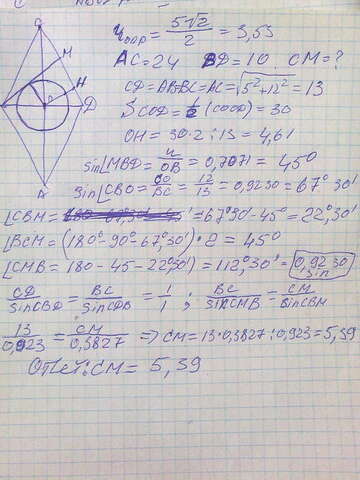 r опр = 5√2/2 = 3,53
AC=24 BD=10 CM=?
CD=AB=BC=AC=√5²+12² = 13
SCOD=½(COOD)=30
OH=30·2:13=4,61
sin∠MBD=r/OB=0,7071=45°
sin∠CBO=CO/BC=12/13=0,9230=67°30'
∠CBM=67°30'-45°=22,30'
∠BCM=(180°-90°-67,30')·2=45°
∠CMB=180-45-22,30'=112,30'=0,9230 sin
CD/sinCBD=BC/sinCDB=1/1; BC/sinCMB=CM/sinCBM
13/0,923=CM/0,3827 => CM=13·0,3827:0,923=5,39
Ответ: CM=5,39
C
M
H
O
D
A